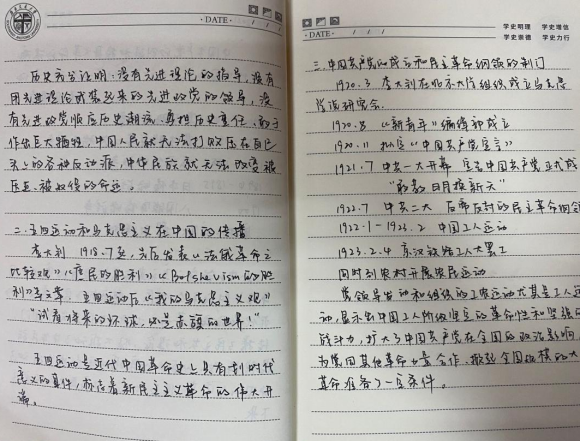 DATE
历史充分证明,没有先进理论的指导,没有
用先进理论武装起来的先进政党的领导,没
有先进政党顺应历史潮流、勇担历史重任、敢于
作出巨大牺牲,中国人民就无法打败压在自己
头上的各种反动派,中华民族就无法改变被
压迫、被奴役的命运。
二、五四运动和马克思主义在中国的传播
李大钊 1918.7起,先后发表《法俄革命之
比较观》《庶民的胜利》《Bolshevism的胜
利》等文章、五四运动后《我的马克思主义观》
"试看将来的环球,必是赤旗的世界!"
五四运动是近代中国革命史上具有划时代
意义的事件,标志着新民主主义革命的伟大开
端。
DATE
学史明理 学史增信
学史崇德 学史力行
三、中国共产党的成立和民主革命纲领的制订
1920.3 李大钊在北京大学组织成立马克思
学说研究会.
1920.8 《新青年》编辑部成立
1920.11 拟定《中国共产党宣言》
1921.7 中共一大开幕 宣告中国共产党正式成
"敢教日月换新天"
1922.7 中共二大 反帝反封的民主革命纲领
1922.1-1923.2 中国工人运动
1923.2.4 京汉铁路工人大罢工
同时到农村开展农民运动
党领导发动和组织的工农运动尤其是工人运
动,显示出中国工人阶级坚定的革命性和坚强的
战斗力,扩大了中国共产党在全国的政治影响,
为党同其他革命力量合作、掀起全国规模的大
革命准备了一定条件。